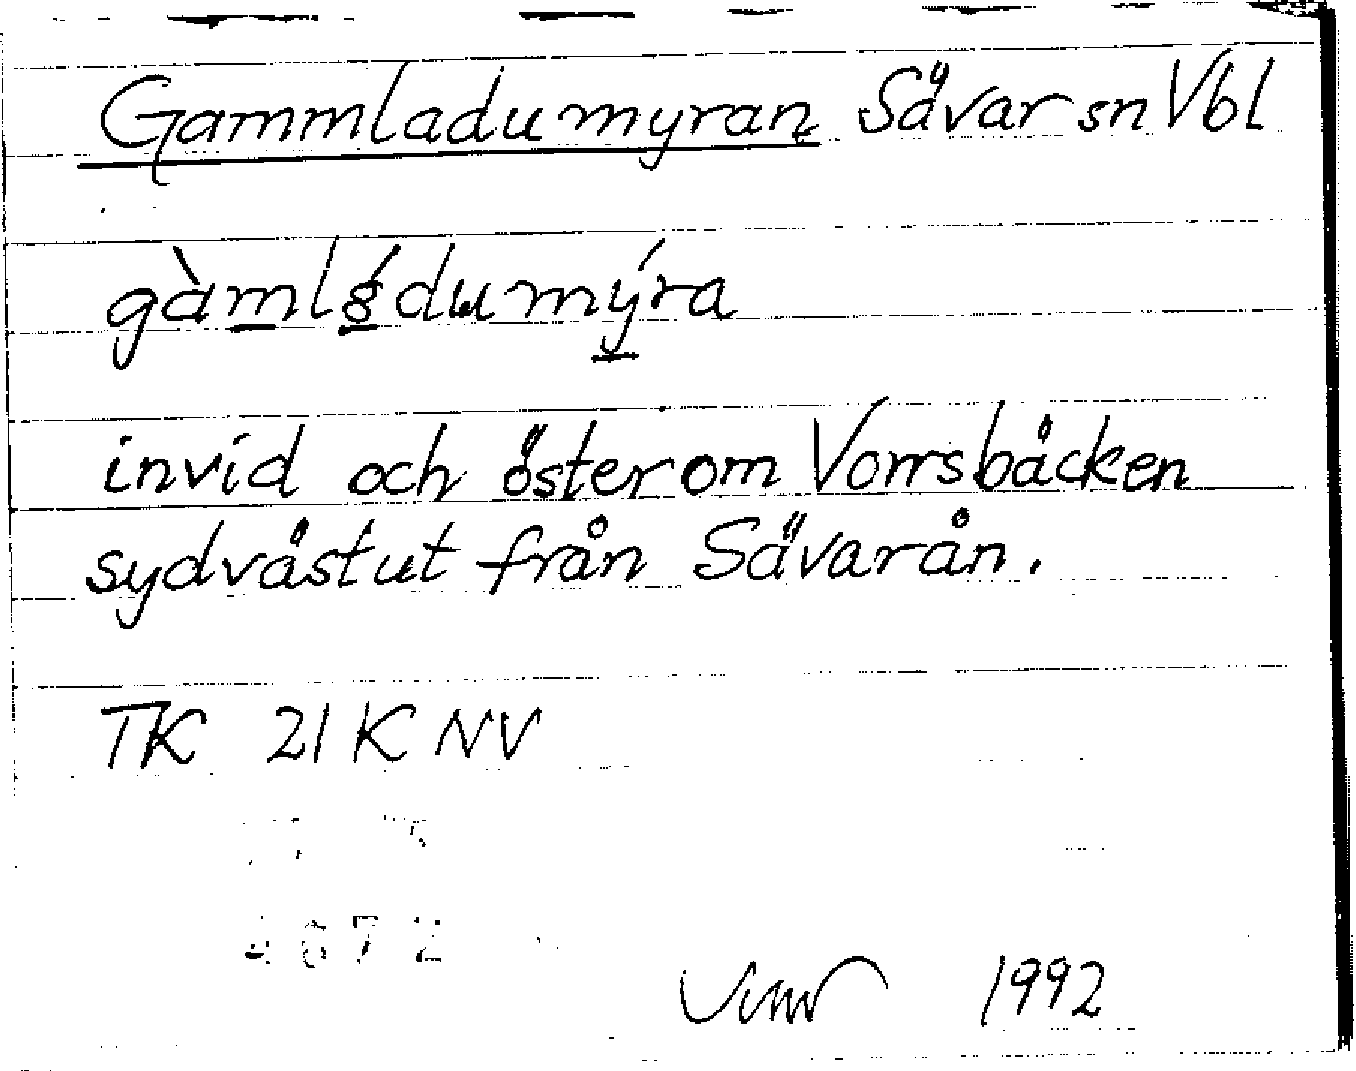 Gammladumyran Sävar sn Vbl
invid och öster om Vorrsbäcken
sydvästut från Sävarån.
TK 21 K NV
4672
1992